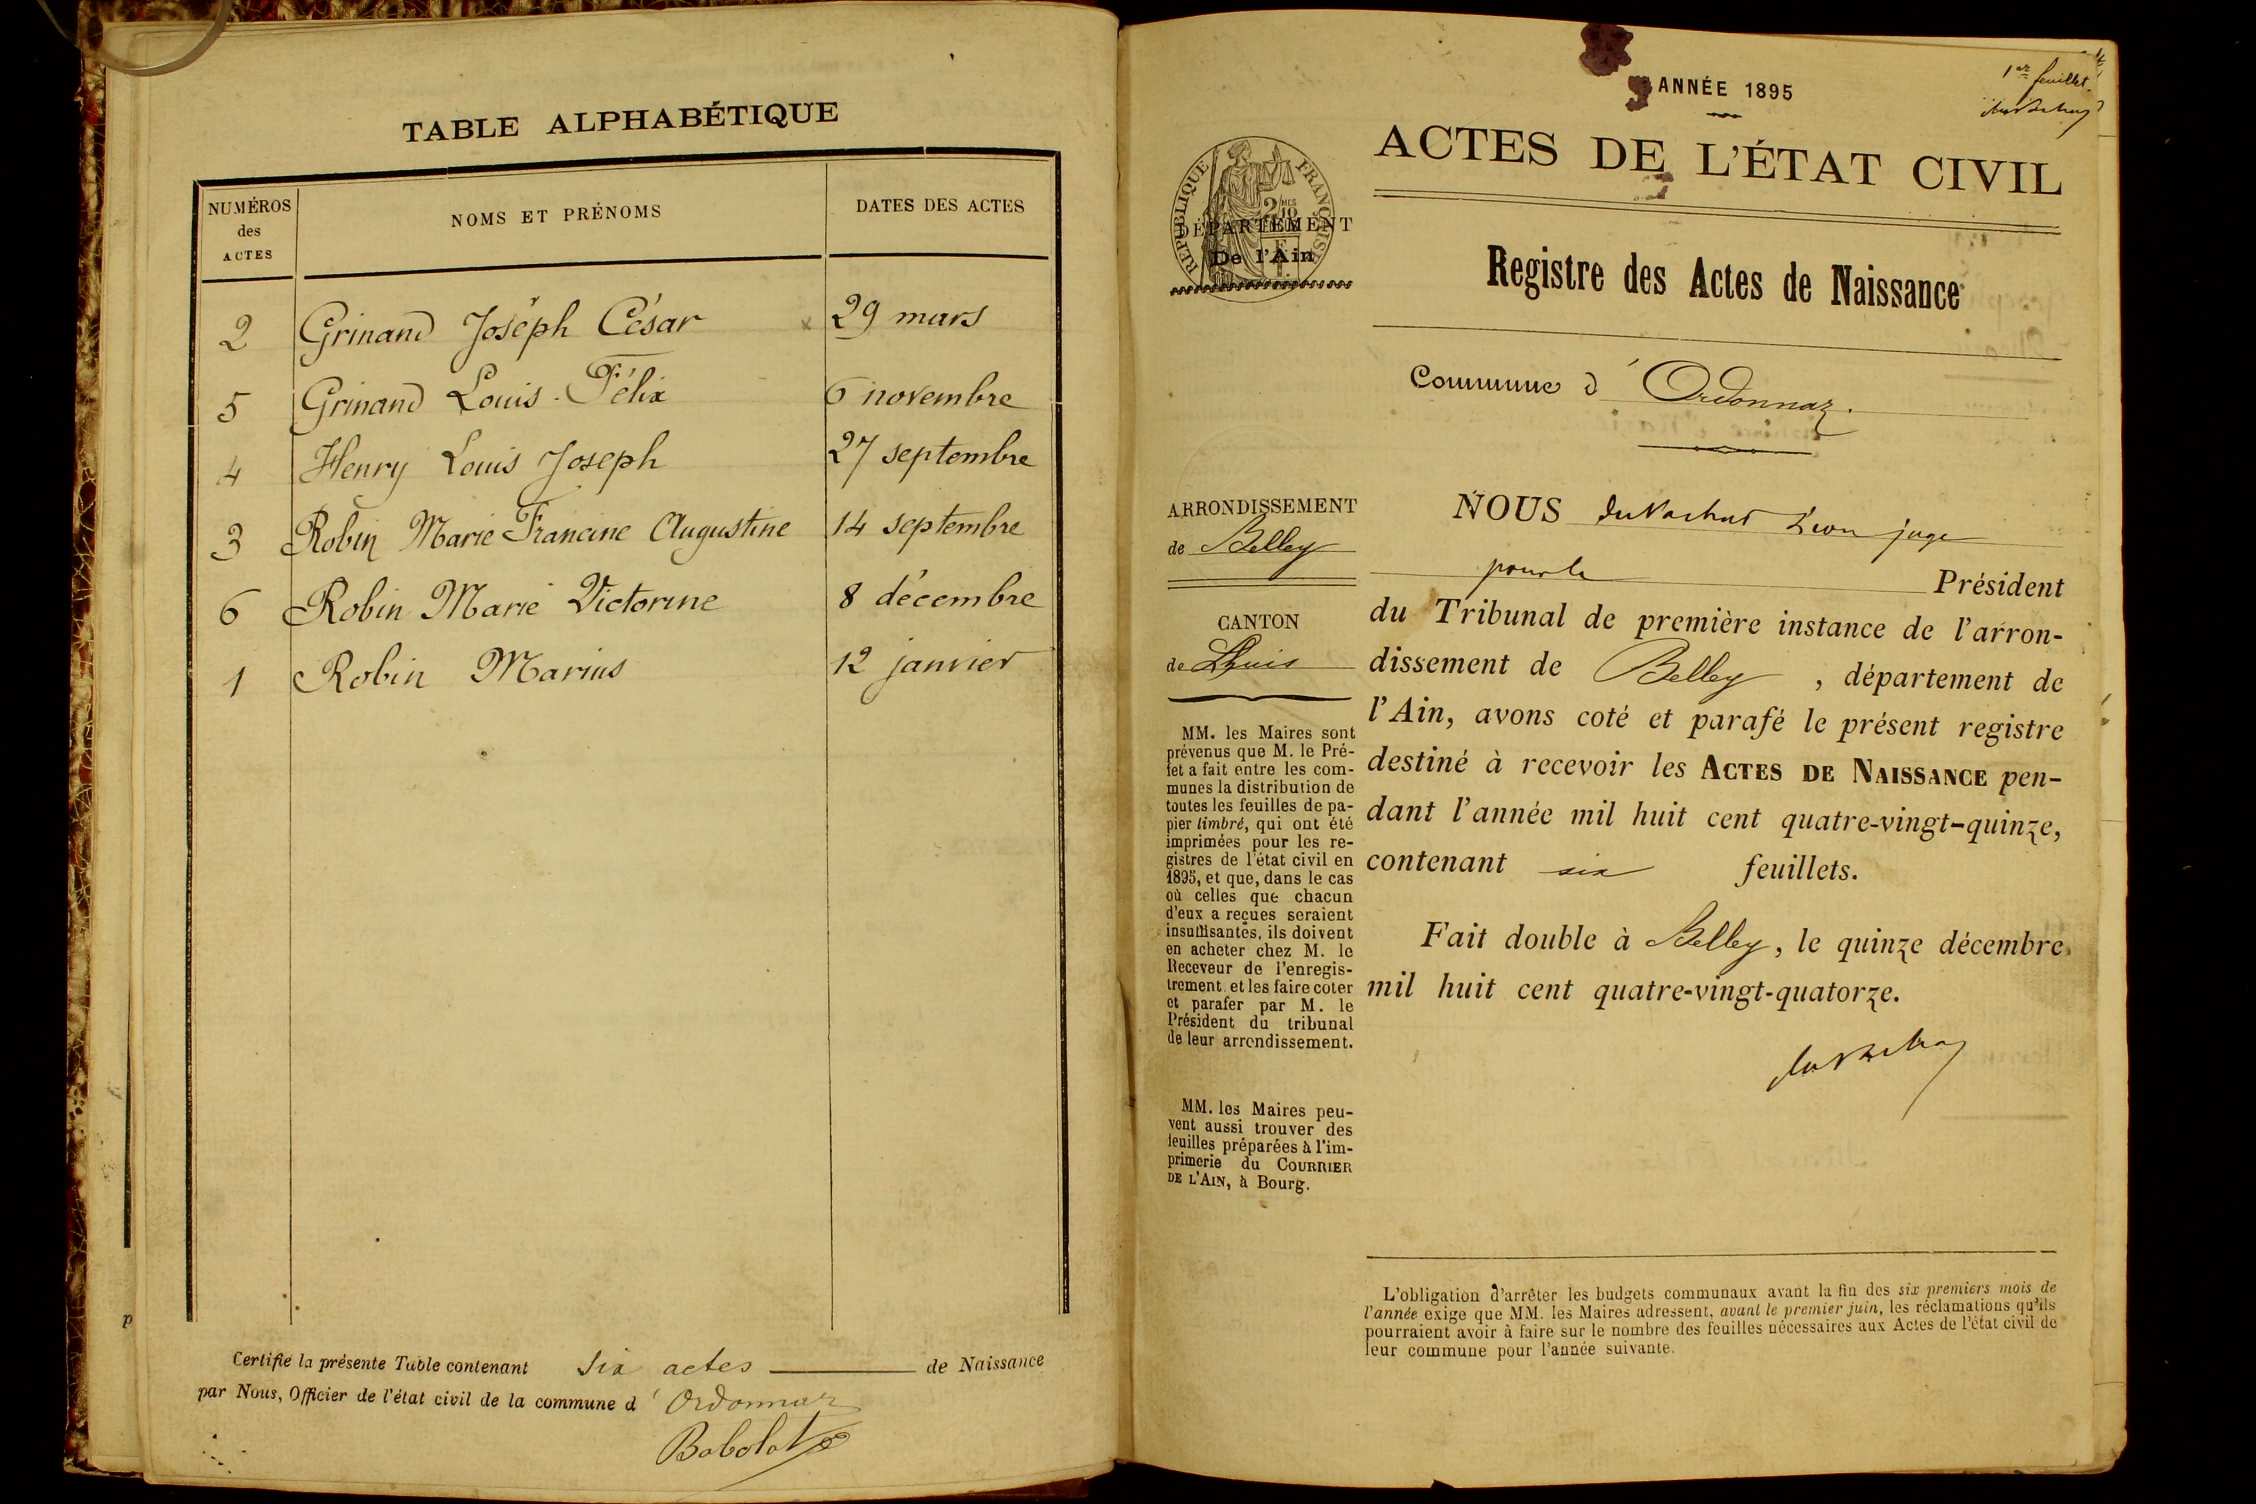 TABLE ALPHABÉTIQUE
NUMÉROS des ACTES
NOMS ET PRÉNOMS
DATES DES ACTES
2 Grinand Joseph César 29 mars
5 Grinand Louis Félix 6 novembre
4 Henry Louis Joseph 27 septembre
3 Robin Marie Francine Augustine 14 septembre
6 Robin Marie Victorine 8 décembre
1 Robin Marius 12 janvier
Certifie la présente Table contenant six actes de Naissance
par Nous, Officier de l'état civil de la commune d'Ordonnaz
p
1er feuillet
ANNÉE 1895
ACTES DE L'ÉTAT CIVIL
RÉPUBLIQUE FRANÇAISE
DÉPARTEMENT
De l'Ain
Registre des Actes de Naissance
Commune d'Ordonnaz.
ARRONDISSEMENT
de Belley
CANTON
de Lhuis
MM. les Maires sont
prévenus que M. le Pré-
fet a fait entre les com-
munes la distribution de
toutes les feuilles de pa-
pier timbré, qui ont été
imprimées pour les re-
gistres de l'état civil en
1895, et que, dans le cas
où celles que chacun
d'eux a reçues seraient
insuffisantes, ils doivent
en acheter chez M. le
Receveur de l'enregis-
trement et les faire coter
et parafer par M. le
Président du tribunal
de leur arrondissement.
MM. les Maires peu-
vent aussi trouver des
feuilles préparées à l'im-
primerie du COURRIER
DE L'AIN, à Bourg.
NOUS juge
pour le Président
du Tribunal de première instance de l'arron-
dissement de Belley, département de
l'Ain, avons coté et parafé le présent registre
destiné à recevoir les ACTES DE NAISSANCE pen-
dant l'année mil huit cent quatre-vingt-quinze,
contenant six feuillets.
Fait double à Belley, le quinze décembre
mil huit cent quatre-vingt-quatorze.
L'obligation d'arrêter les budgets communaux avant la fin des six premiers mois de
l'année exige que MM. les Maires adressent, avant le premier juin, les réclamations qu'ils
pourraient avoir à faire sur le nombre des feuilles nécessaires aux Actes de l'état civil de
leur commune pour l'année suivante.